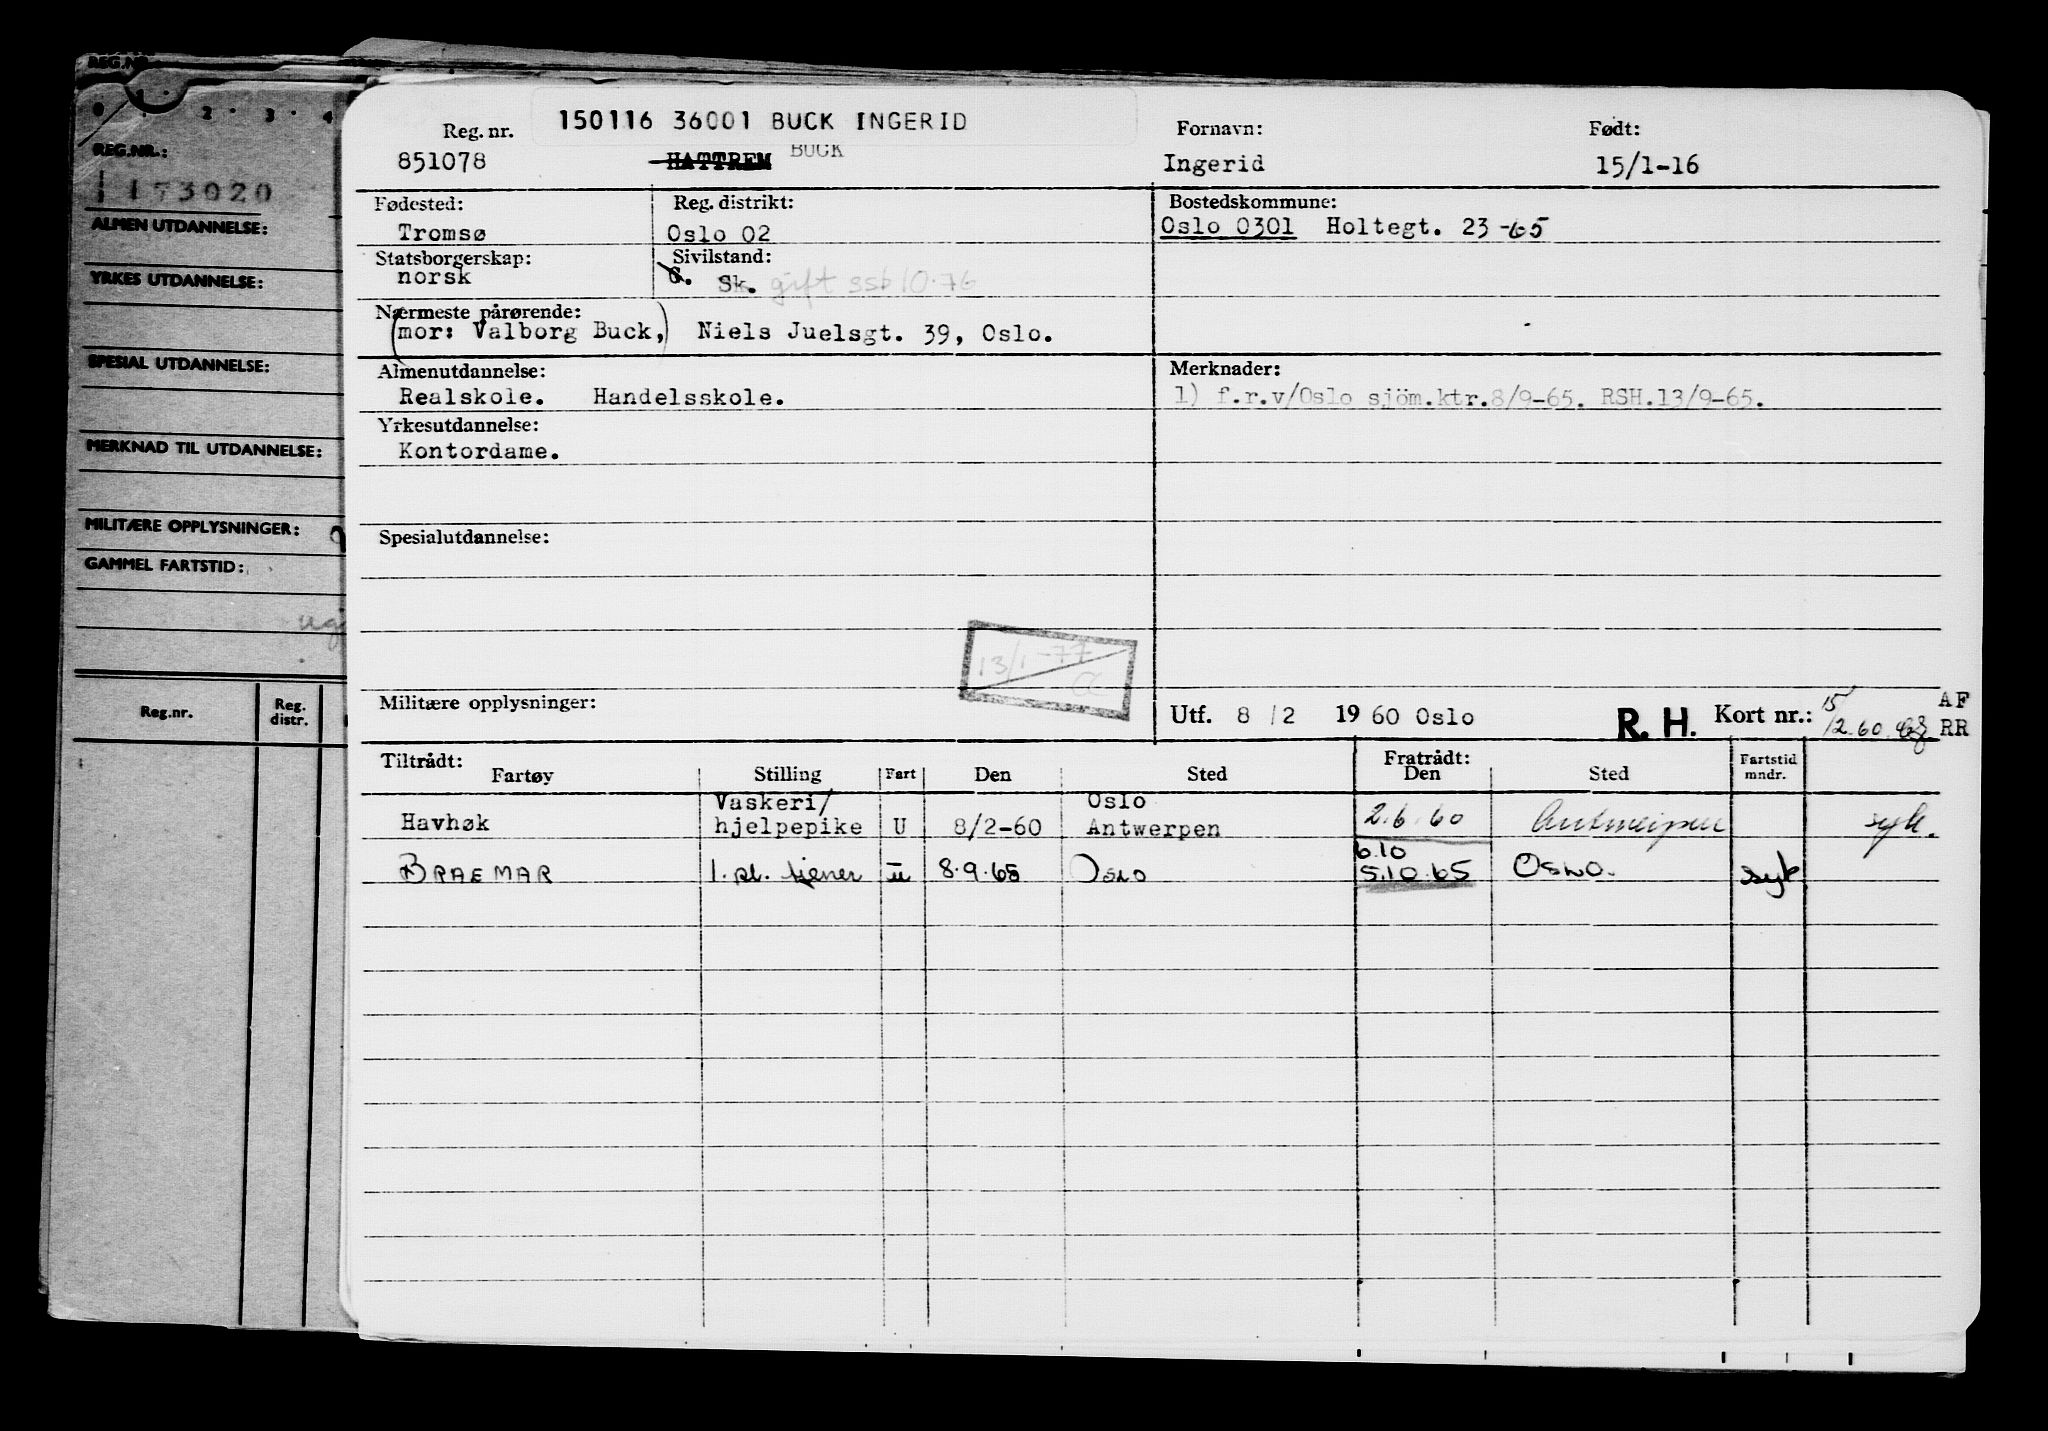 REG.NR.
0 1 2 3 4
REG.NR.:
173020
ALMEN UTDANNELSE:
YRKES UTDANNELSE:
SPESIAL UTDANNELSE:
MERKNAD TIL UTDANNELSE:
MILITÆRE OPPLYSNINGER:
GAMMEL FARTSTID:
Reg.nr. Reg. distr.
150116 36001 BUCK INGERID
Reg. nr. Fornavn: Født:
851078 HATTREM BUCK Ingerid 15/1-16
Fødested: Reg. distrikt: Bostedskommune:
Tromsø Oslo 02 Oslo 0301 Holtegt. 23 -65
Statsborgerskap: Sivilstand:
norsk G. Sk. gift ssb 10.76
Nærmeste pårørende:
(mor: Valborg Buck,) Niels Juelsgt. 39, Oslo.
Almenutdannelse: Merknader:
Realskole. Handelsskole. 1) f.r.v/Oslo sjöm.ktr.8/9-65. RSH.13/9-65.
Yrkesutdannelse:
Kontordame.
Spesialutdannelse:
13/1-77
Militære opplysninger: Utf. 8/2 1960 Oslo R. H. Kort nr.: 15/2.60 AF RR
Tiltrådt: Fratrådt:
Fartøy Stilling Fart Den Sted Den Sted Fartstid mndr.
Havhøk Vaskeri/ hjelpepike U 8/2-60 Oslo Antwerpen 2.6.60 Antwerpen syk.
6.10
BRAEMAR 1. pl. tjener U 8.9.65 Oslo 5.10.65 Oslo. syk